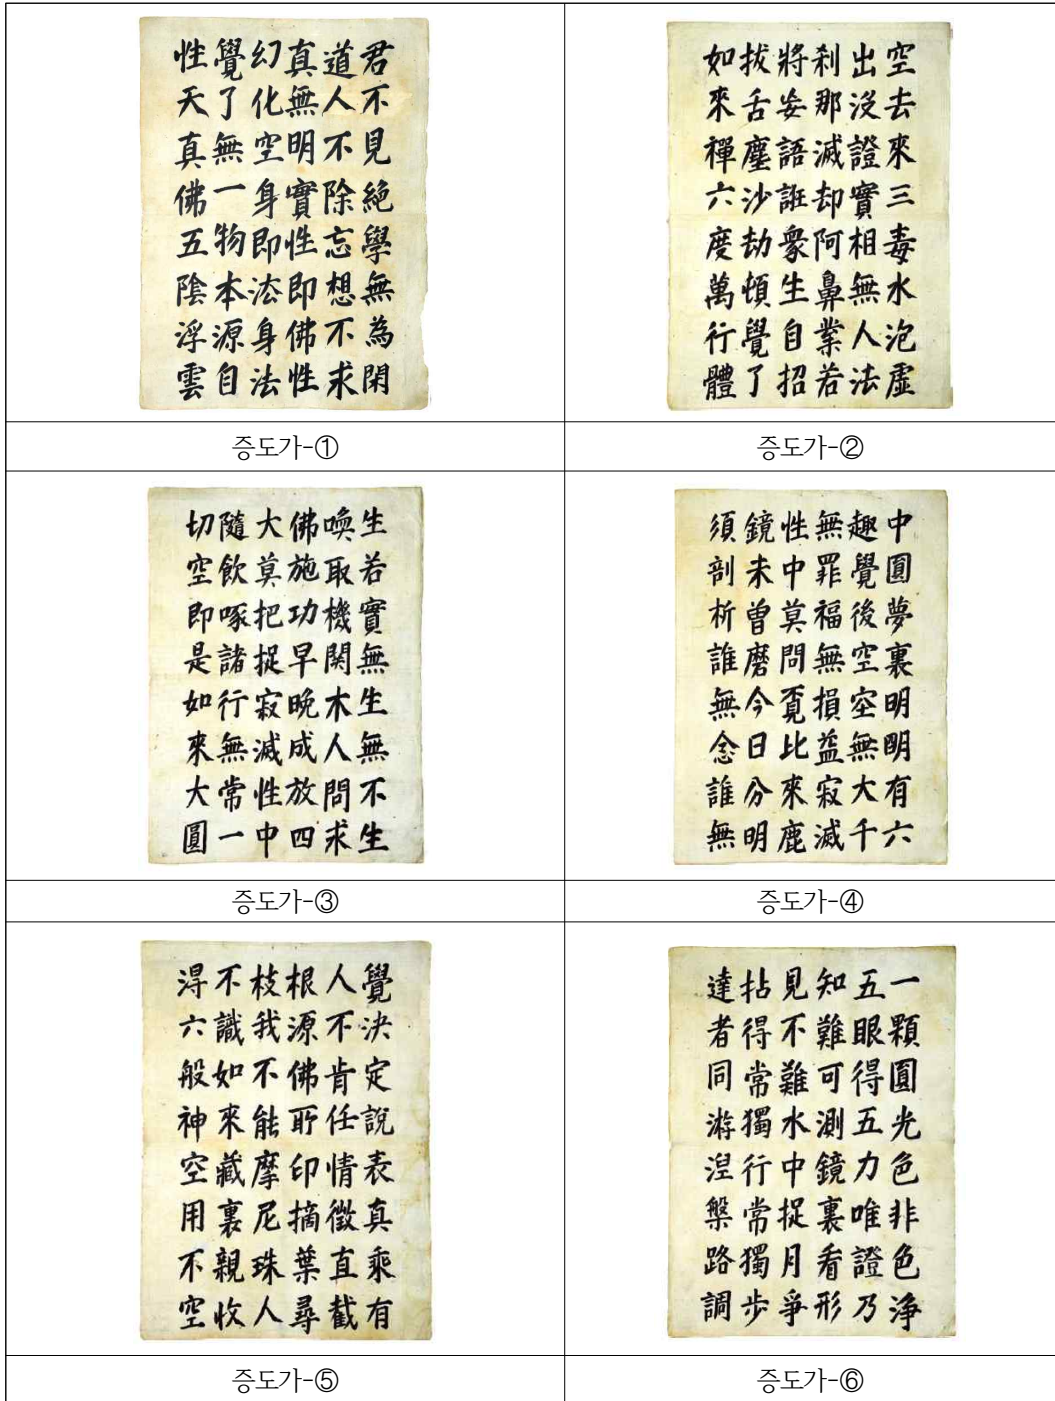 君不見絕學無為閑
道人不除忘想不求
真無明實性即佛性
幻化空身即法身法
覺了無一物本源自
性天真佛五陰浮雲
증도가-①
空去來三毒水泡虛
出沒證實相無人法
剎那滅却阿鼻業若
將妄語誑衆生自招
拔舌塵沙劫頓覺了
如來禪六度萬行體
증도가-②
生若實無生無不生
喚取機関木人問求
佛施功早晚成放四
大莫把捉寂滅性中
隨飲啄諸行無常一
切空即是如來大圓
증도가-③
中圓夢裏明明有六
趣覺後空空無大千
無罪福無損益寂滅
性中莫問覓比來鹿
鏡未曽磨今日分明
須剖析誰無念誰無
증도가-④
覺決定說表真乘有
人不肯任情徵直截
根源佛所印摘葉尋
枝我不能摩尼珠人
不識如來藏裏親收
淂六般神空用不空
증도가-⑤
一顆圓光色非色淨
五眼得五力唯證乃
知難可測鏡裏看形
見不難水中捉月爭
拈得常獨行常獨步
達者同游涅槃路調
증도가-⑥